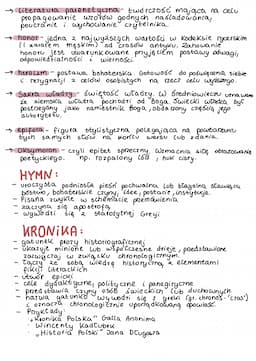 → Literatura parenetyczna - twórczość mająca na celu
propagowanie wzorców godnych naśladowania,
pouczenie i wychowanie czytelnika.
→ honor - jedna z najwyższych wartości w kodeksie rycerskim
honoru jest uwarunkowane przyjęciem postawy odwagi,
odpowiedzialności i wierności.
→ heroizm - postawa bohaterska. Gotowość do poświęcenia siebie
i rezygnacji z celów osobistych na rzecz celu wyższego.
→ Sakra władzy - świętość władzy. W średniowieczu uznawano
że ziemska władza pochodzi od Boga. Świecki władca był
postrzegany jako namiestnik Boga, obdarzony częścią jego
autorytetu.
→ epifora - figura stylistyczna, polegająca na powtarzaniu
tych samych słów na końcu wersu lub zdania.
→ Oksymoron - czyli epitet sprzeczny. Wzmacnia siłę obrazowania
poetyckiego. np. rozpalony lód, huk ciszy.
HYMN:
- uroczysta podniosła pieśń pochwalna lub błagalna sławiąca
bóstwo, bohaterskie czyny, idee, postaci, instytucje.
- Pisana zwykle w
- zaczyna się apostrofą
- wywodzi się z starożytnej Grecji
KRONIKA:
- gatunek prozy historiograficznej
- ukazuje minione lub współczesne dzieje, przedstawione
zazwyczaj w związku chronologicznym.
- łączy ze sobą wiedzę historyczną z elementami
fikcji literackich
- utwór epicki
- cele dydaktyczne, polityczne i panegiryczne
- przedstawia czyny osób świeckich lub duchownych
- nazwa gatunku wywodzi się z greki (gr. chronos-"czas")
i oznacza chronologicznie uporządkowaną opowieść.
- Przykłady:
• „Kronika Polska" Galla Anonima
• Wincenty Kadłubek
• „Historia Polski" Jana Długosza